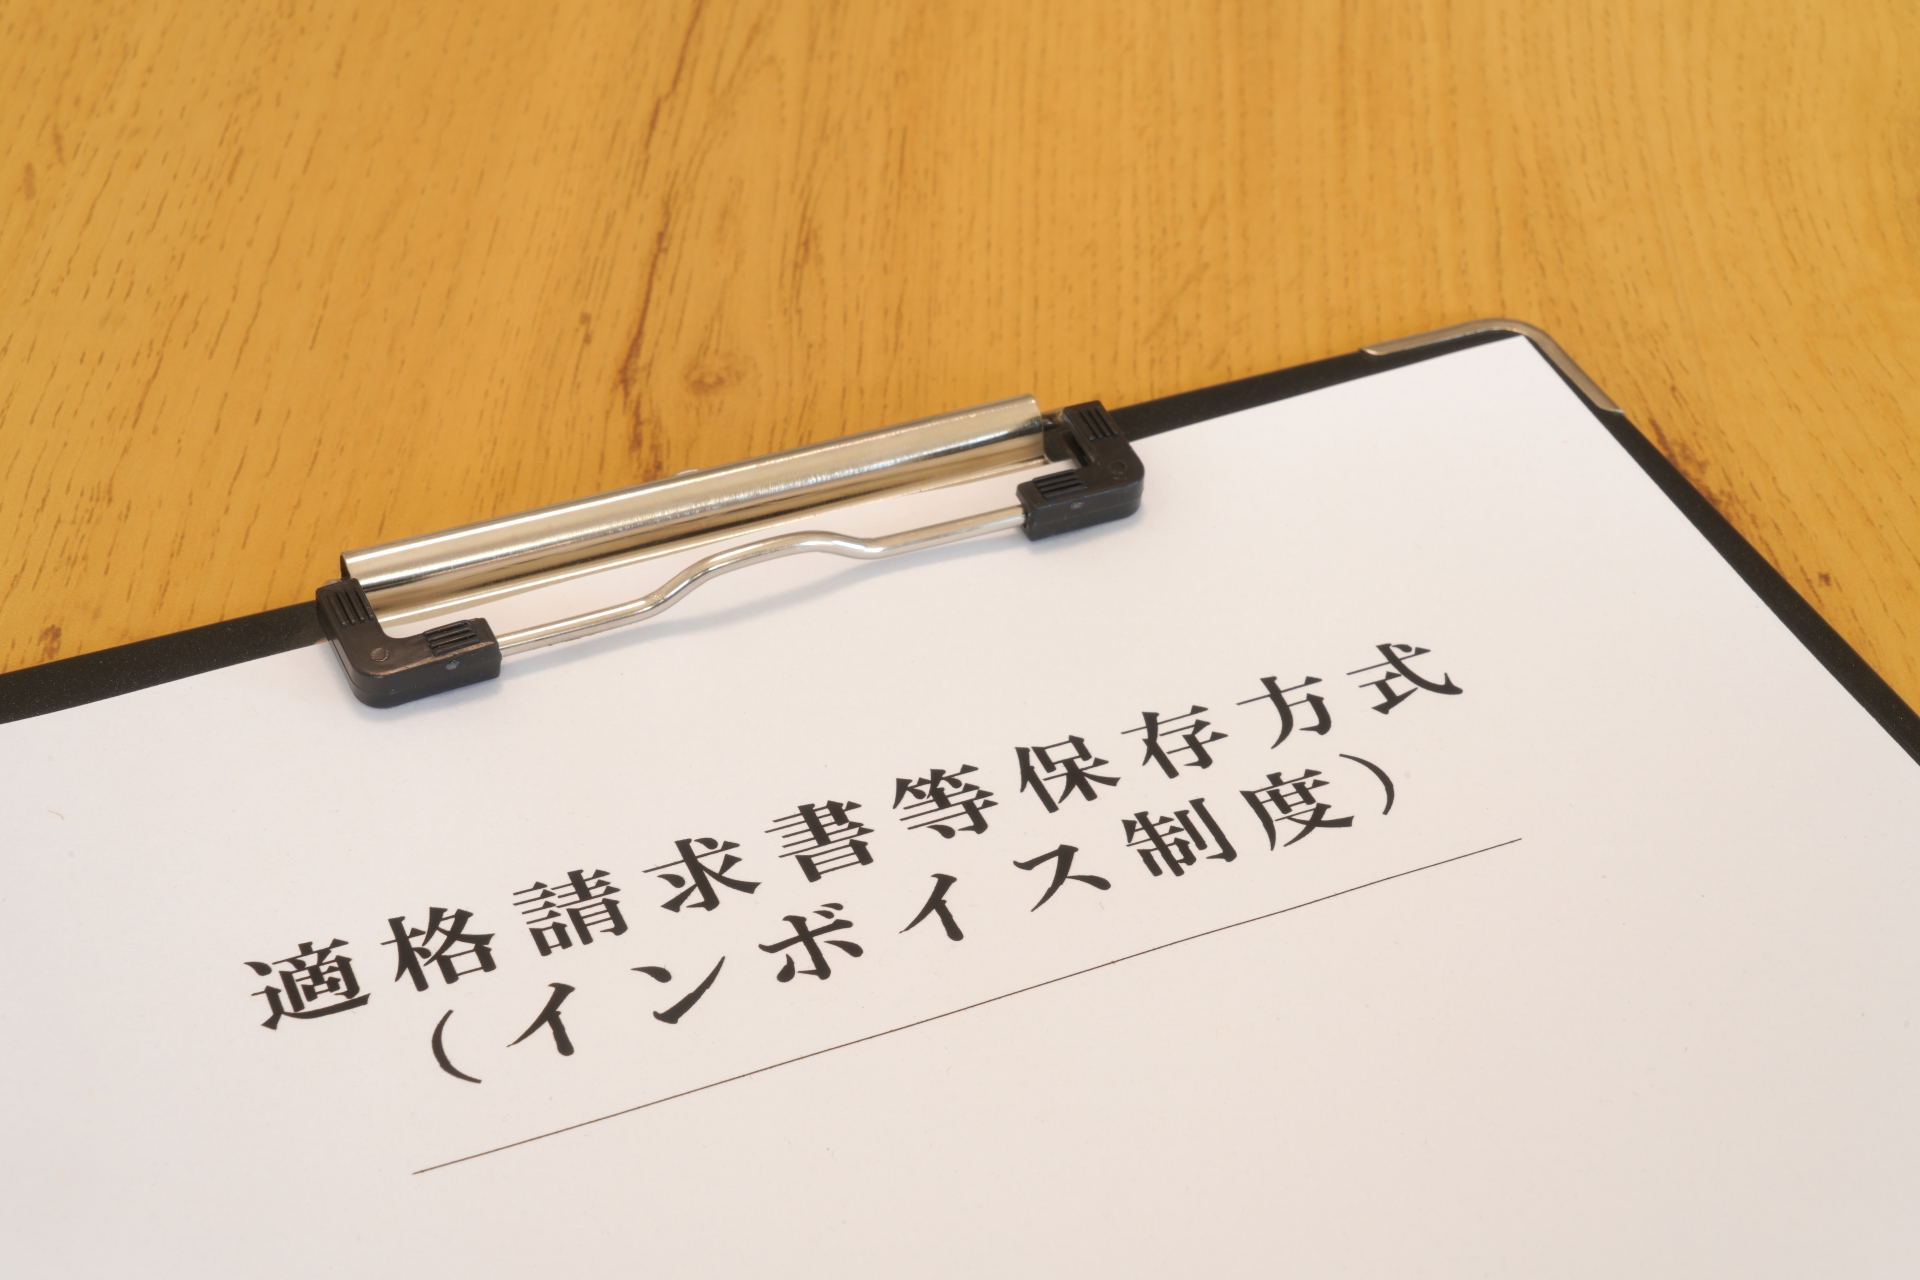 適格請求書等保存方式
（インボイス制度）